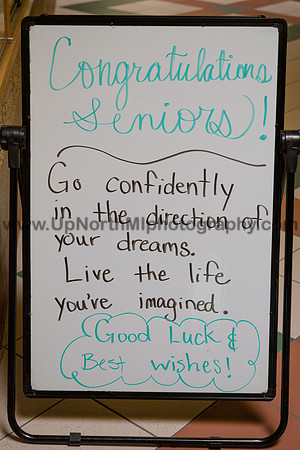 Congratulations
Seniors!
Go confidently
in the direction of
www.UpNorthMIphotography.com
your dreams.
Live the life
you've imagined.
Good Luck &
Best wishes!